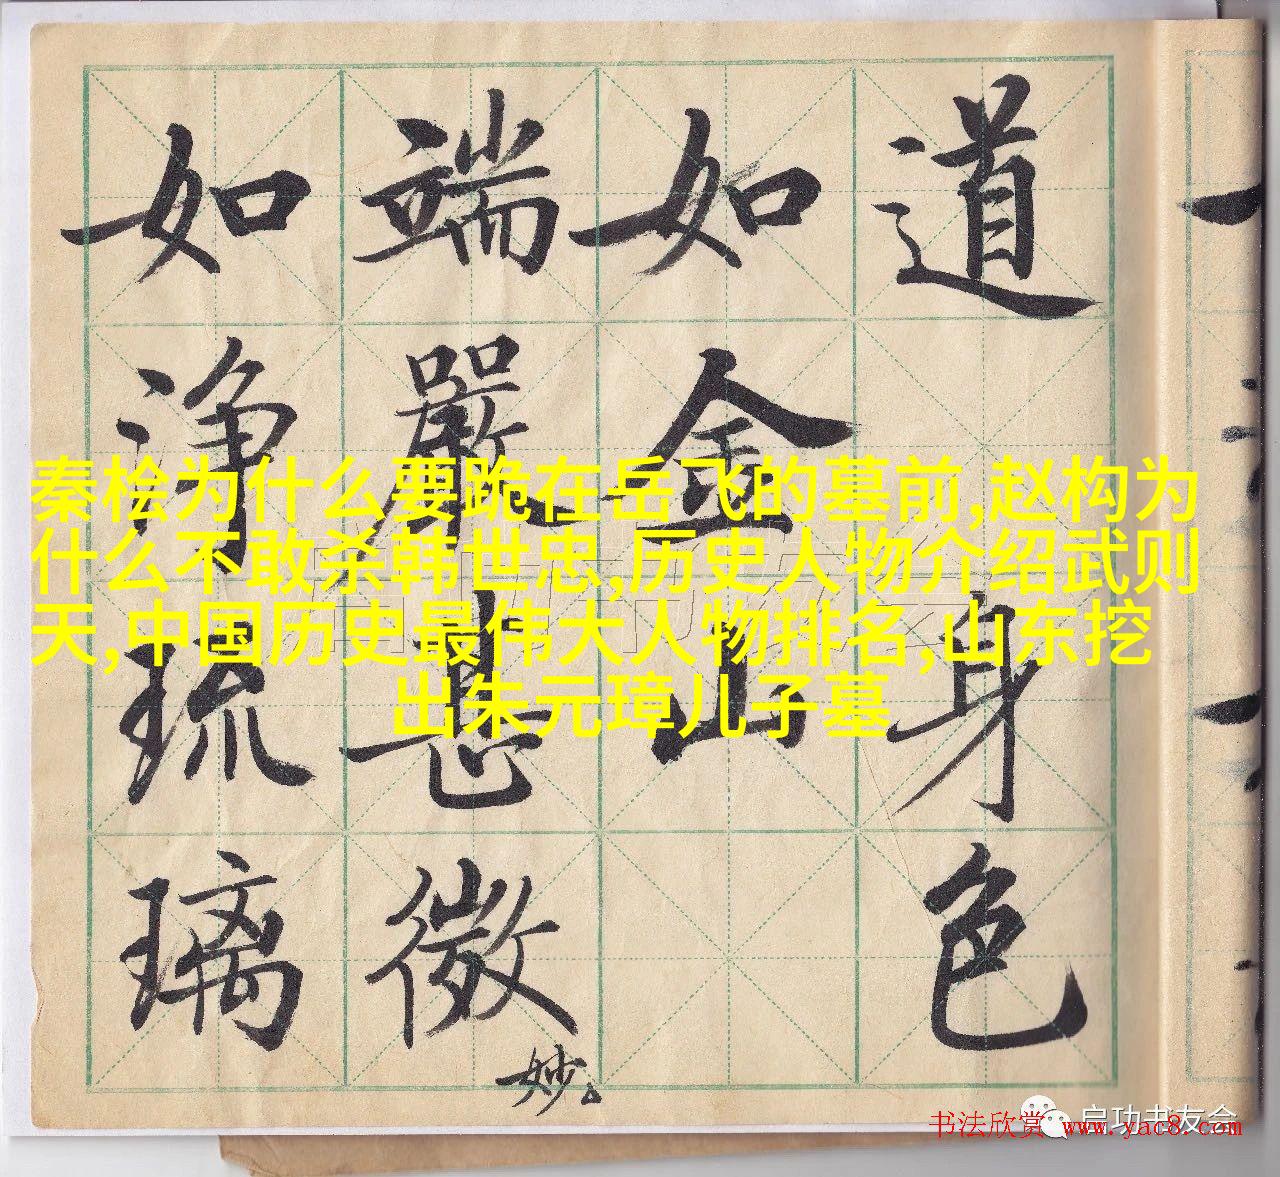 道身色
如金山
端嚴甚微妙
如淨琉璃
秦桧为什么要跪在岳飞的墓前,赵构为
什么不敢杀韩世忠,历史人物介绍武则
天,中国历史最伟大人物排名,山东挖
出朱元璋儿子墓
启功书友会
书法欣赏 www.yac8.com